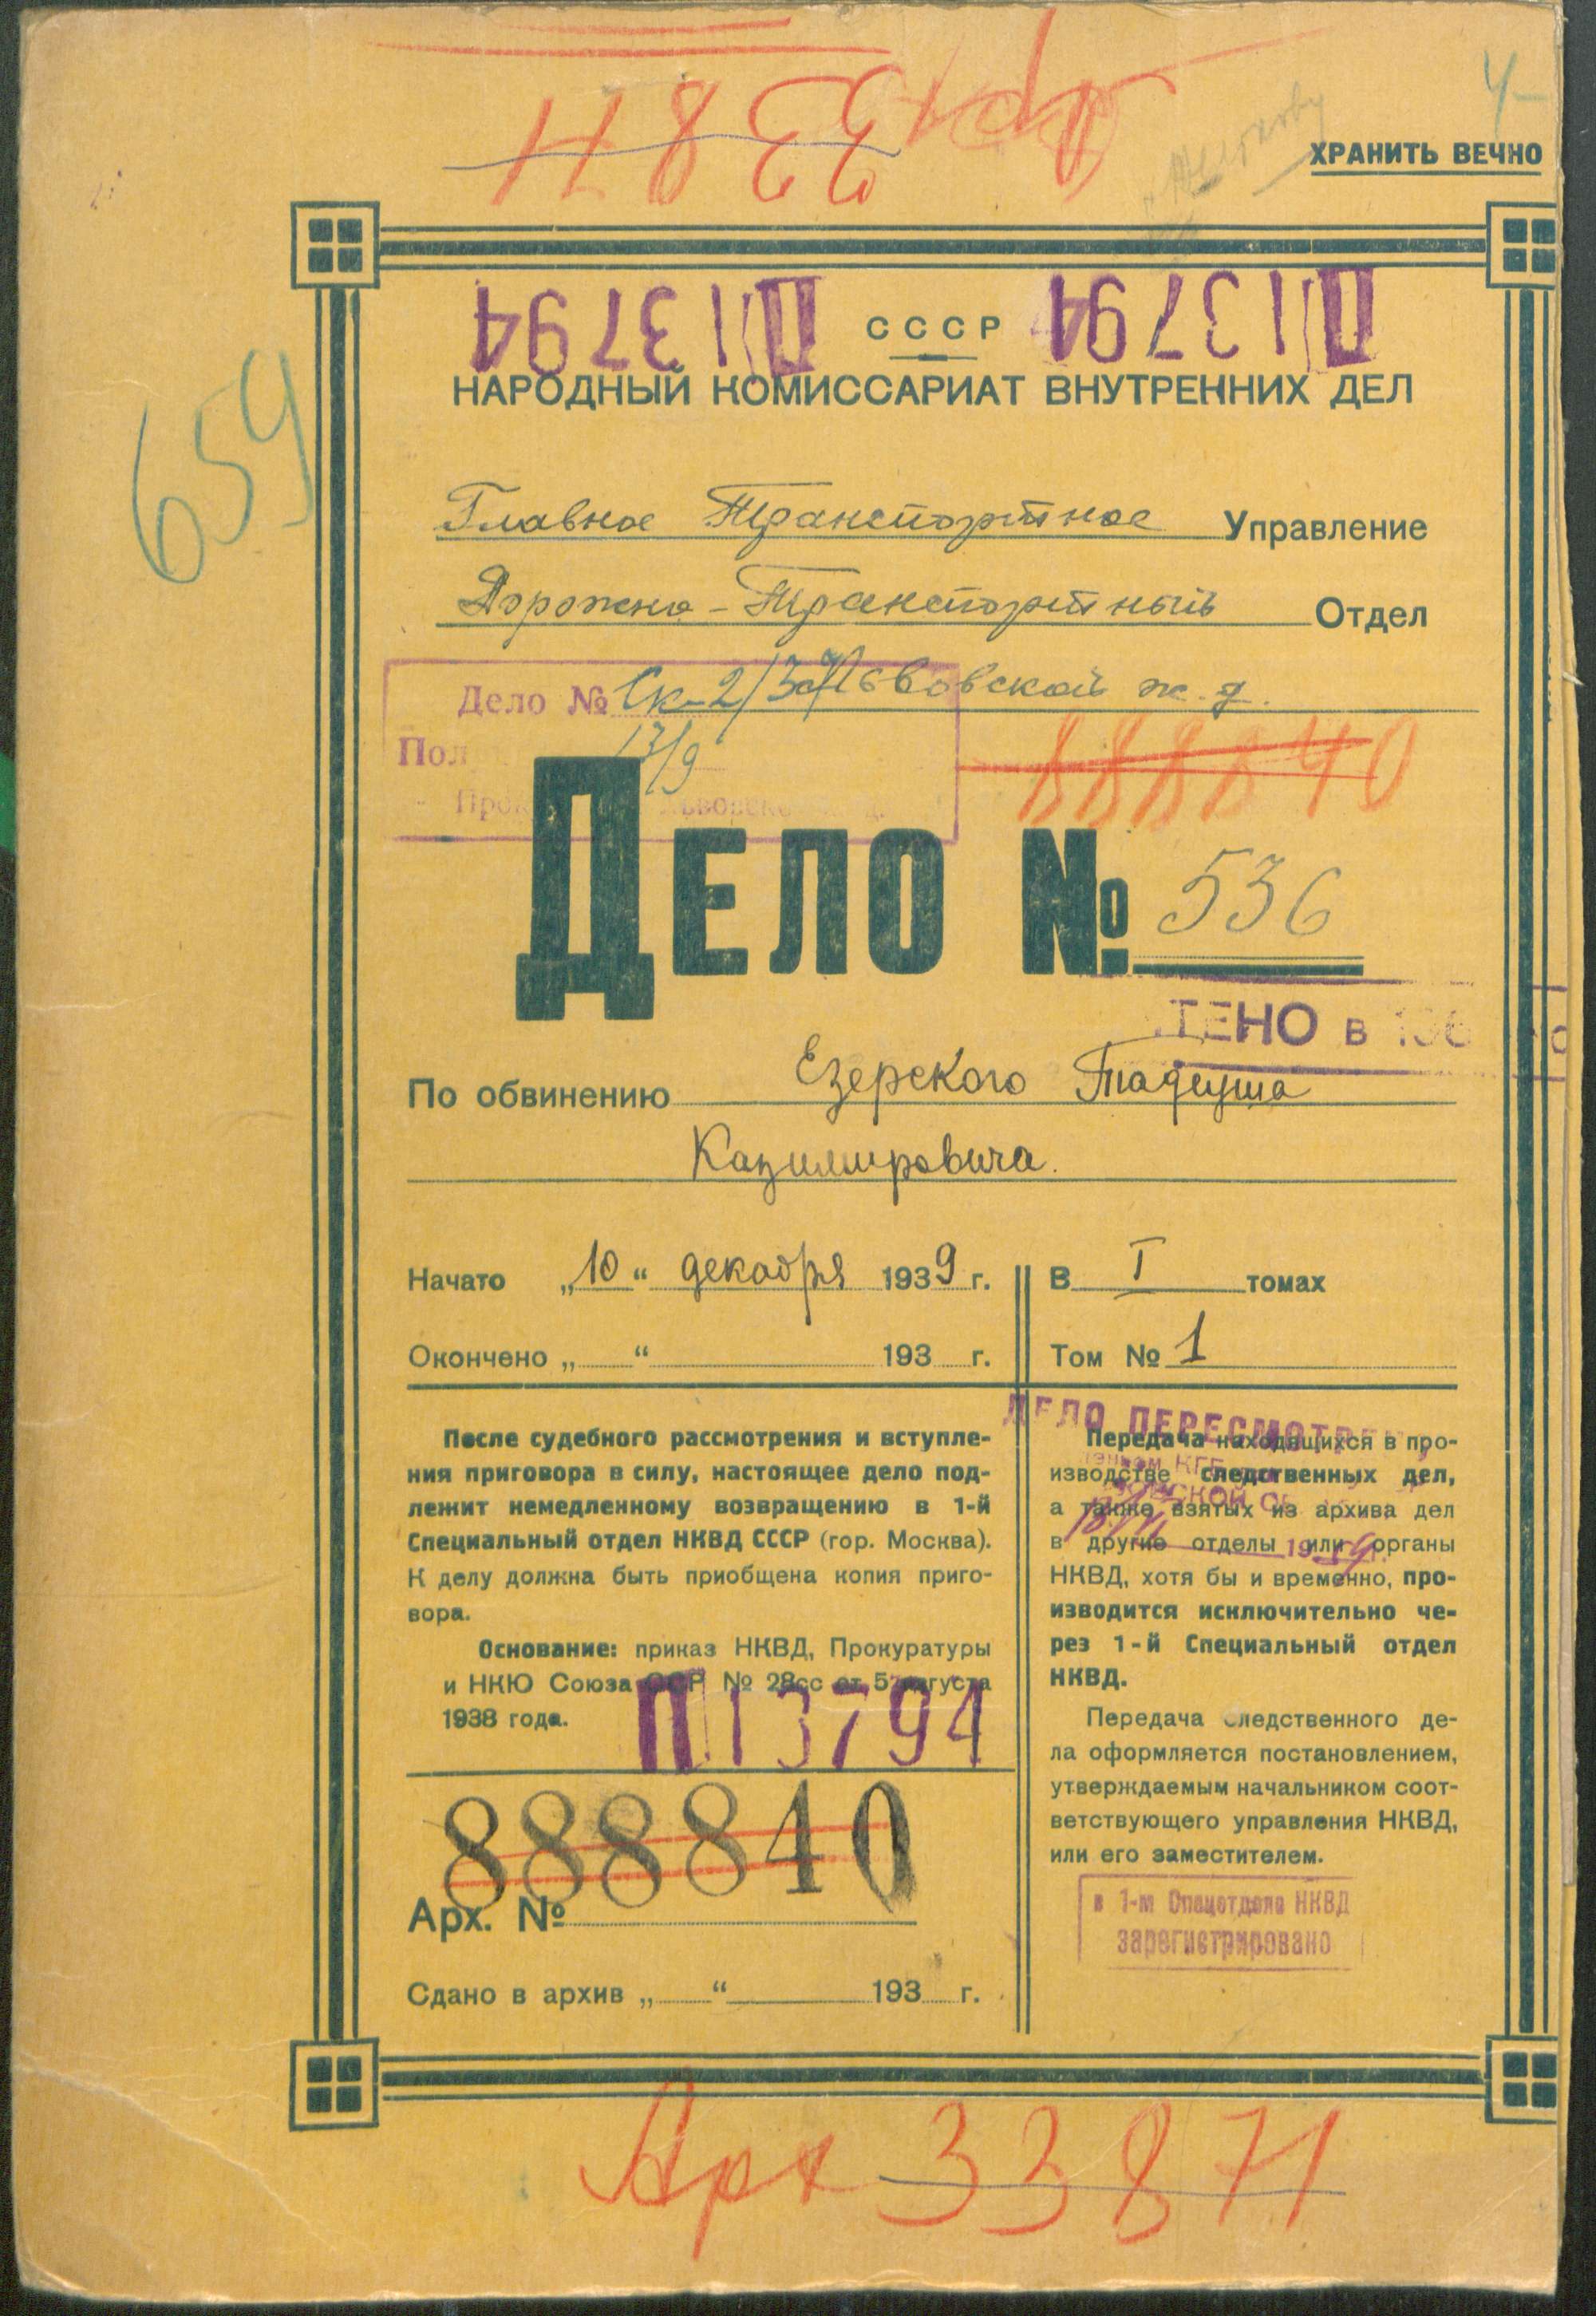 Арх 33871
4-
ХРАНИТЬ ВЕЧНО
П 13794
П 13794
СССР
НАРОДНЫЙ КОМИССАРИАТ ВНУТРЕННИХ ДЕЛ
659
Главное Транспортное Управление
Дорожно-Транспортный Отдел
Львовской ж.д.
Дело № Ск-2/3
13/9
888840
Дело № 536
ТЕНО в 196
По обвинению Езерского Тадеуша
Казимировича.
Начато „10“ декабря 1939 г.
В I томах
Окончено „ “ 193 г.
Том № 1
После судебного рассмотрения и вступле-
ния приговора в силу, настоящее дело под-
лежит немедленному возвращению в 1-й
Специальный отдел НКВД СССР (гор. Москва).
К делу должна быть приобщена копия приго-
вора.
Основание: приказ НКВД, Прокуратуры
и НКЮ Союза ССР № 28сс от 5 августа
1938 года.
П 13794
888840
Арх. №
Сдано в архив „ “ 193 г.
ДЕЛО ПЕРЕСМОТРЕНО
Передача находящихся в про-
изводстве следственных дел,
а также взятых из архива дел
в другие отделы или органы
НКВД, хотя бы и временно, про-
изводится исключительно че-
рез 1-й Специальный отдел
НКВД.
Передача следственного де-
ла оформляется постановлением,
утверждаемым начальником соот-
ветствующего управления НКВД,
или его заместителем.
в 1-м Спецотделе НКВД
зарегистрировано
Арх 33871